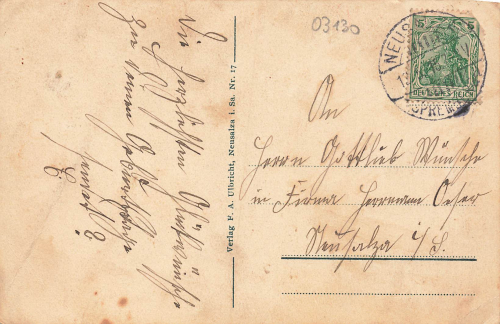 03130
5 5
NEUS
DEUTSCHES REICH
(SPREE)
An
Herrn Gottlieb Wünsche
in Firma Herrmann Oeser
Neusalza i/S.
Verlag F. A. Ulbricht, Neusalza i. Sa. Nr. 17
Die herzlichsten Glückwünsche
zu
Deinem Geburtstage